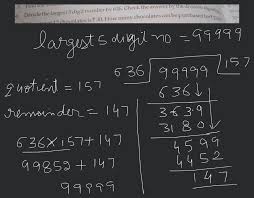 Divide the largest 5 digit number by 636. Check the answer by the division
largest 5 digit no = 99999
quotient = 157
remainder = 147
636×157 + 147
99852 + 147
99999
636 99999 157
636↓
3639
3180↓
4599
4452
147